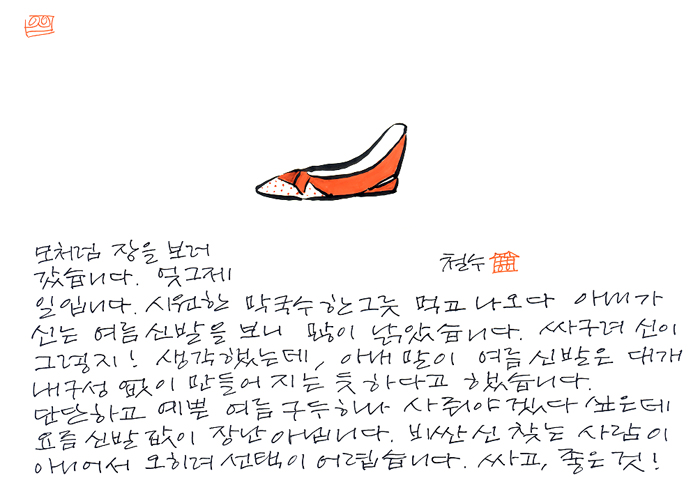 모처럼 장을 보러
갔습니다. 엊그제
철수
일입니다. 시원한 막국수 한그릇 먹고 나오다 아내가
신는 여름신발을 보니 많이 낡았습니다. 싸구려 신이
그렇지! 생각했는데, 아내 말이 여름신발은 대개
내구성 없이 만들어 지는 듯 하다고 했습니다.
단단하고 예쁜 여름구두하나 사줘야겠다 싶은데
요즘 신발값이 장난 아닙니다. 비싼 신 찾는 사람이
아니어서 오히려 선택이 어렵습니다. 싸고, 좋은 것!